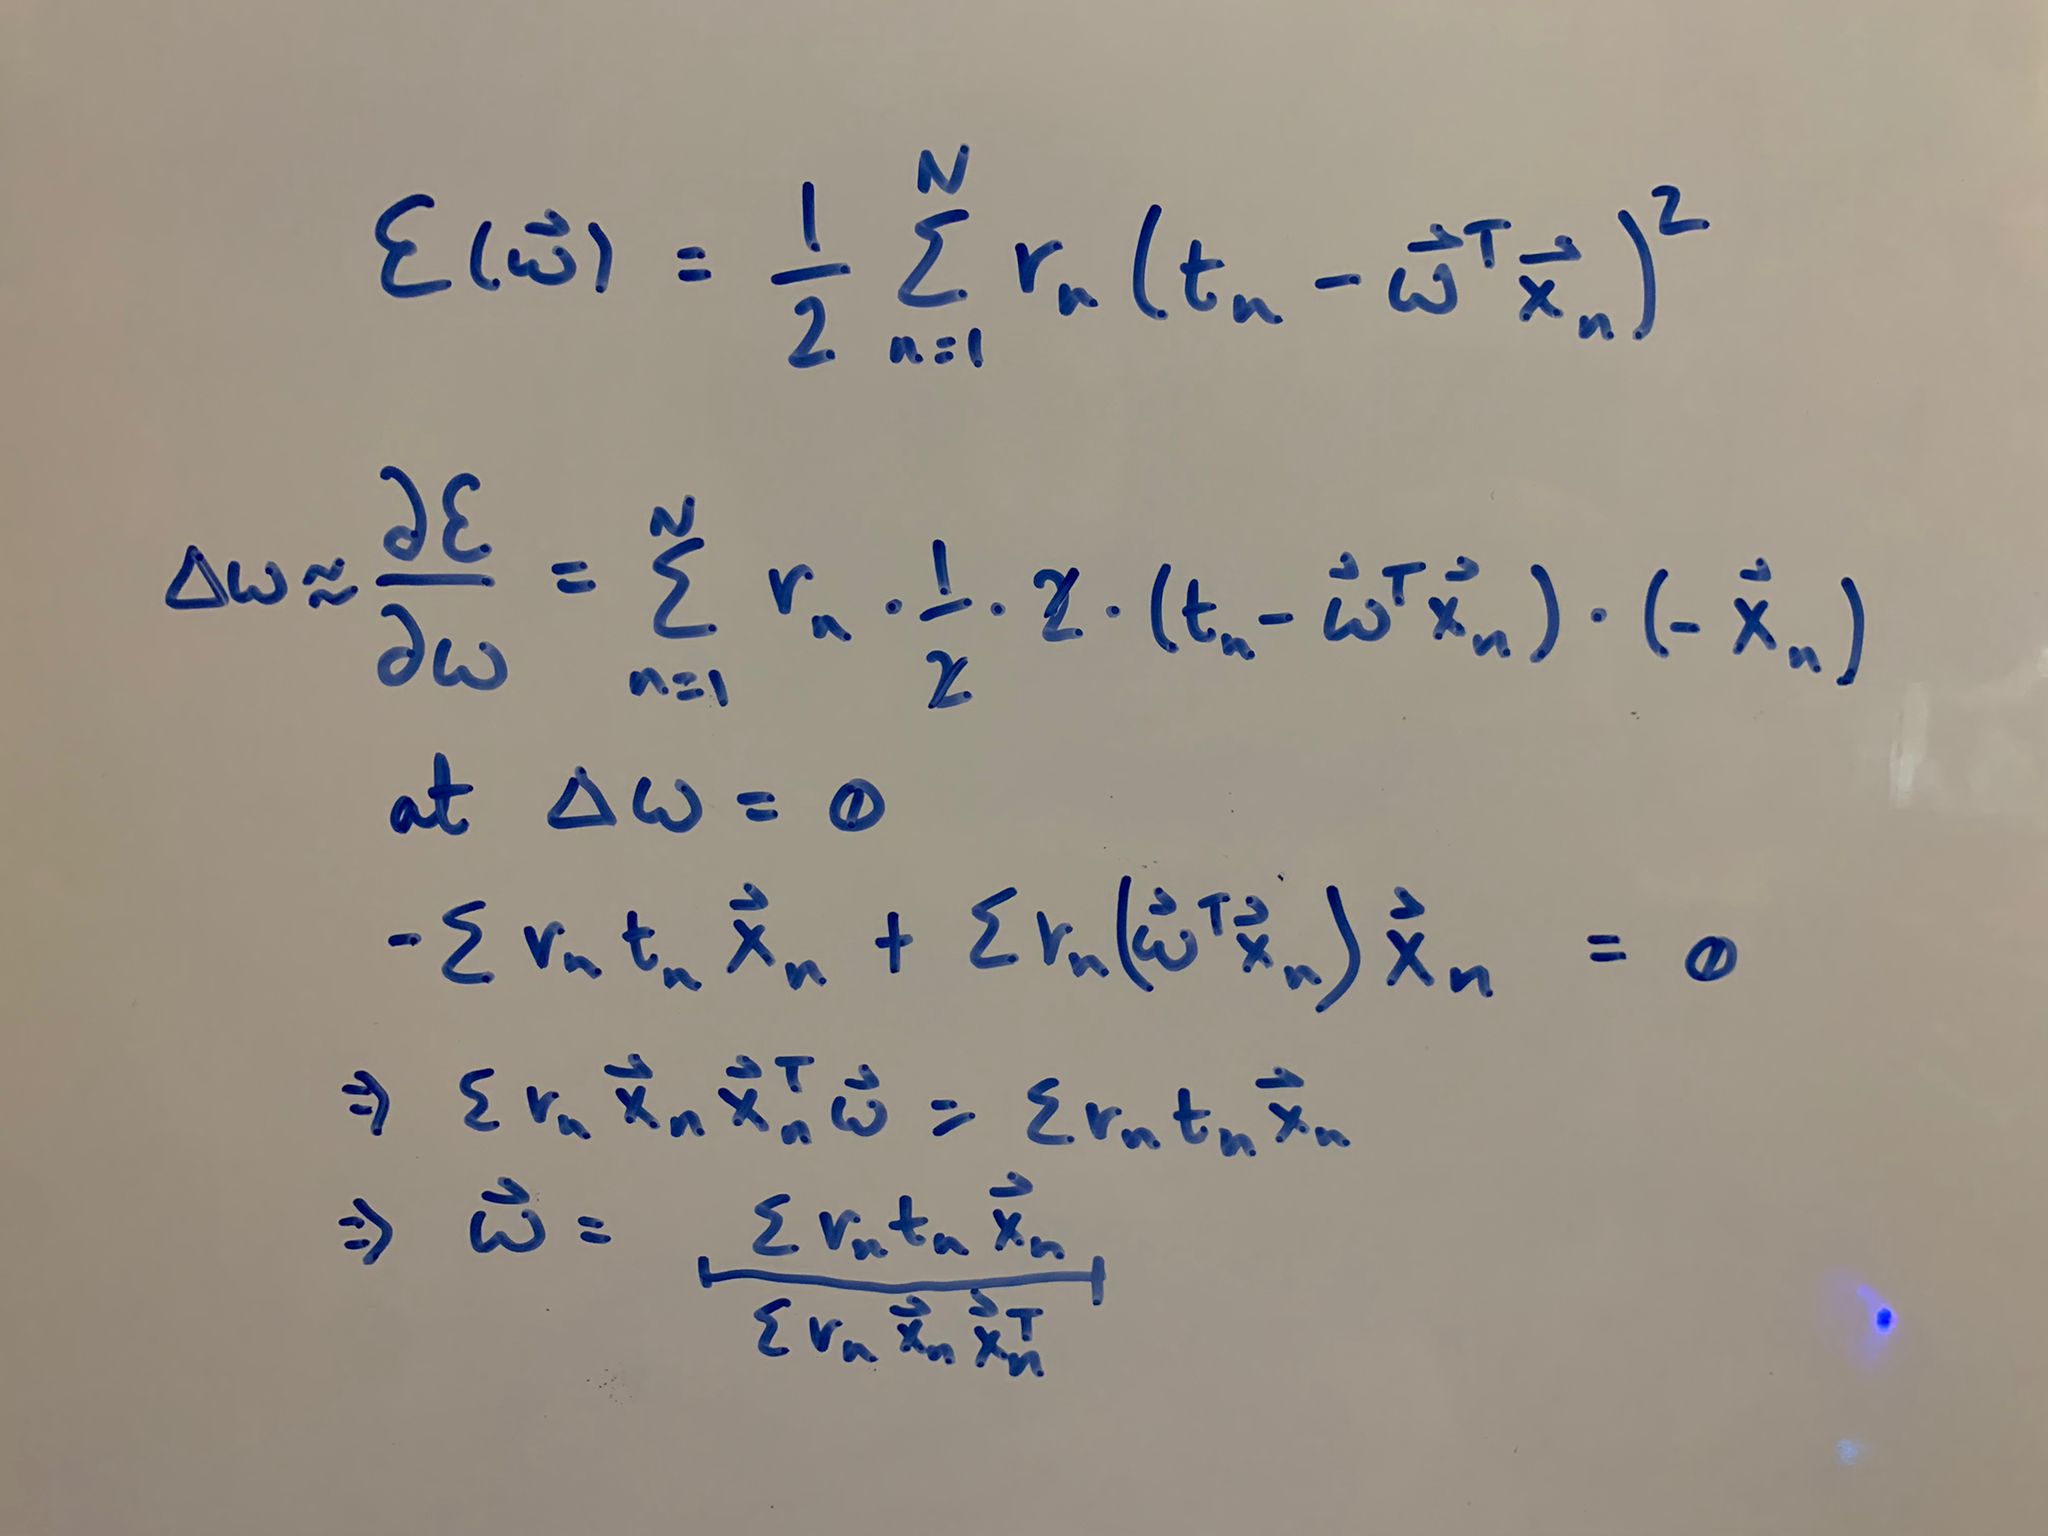 Ɛ(ω⃗) = 1/2 Σ_{n=1}^{N} r_n (t_n − ω⃗ᵀ x⃗_n)²
Δω ≈ ∂Ɛ/∂ω = Σ_{n=1}^{N} r_n · 1/2 · 2 · (t_n − ω⃗ᵀ x⃗_n) · (− x⃗_n)
at Δω = 0
− Σ r_n t_n x⃗_n + Σ r_n (ω⃗ᵀ x⃗_n) x⃗_n = 0
⇒ Σ r_n x⃗_n x⃗_nᵀ ω⃗ = Σ r_n t_n x⃗_n
⇒ ω⃗ = Σ r_n t_n x⃗_n / Σ r_n x⃗_n x⃗_nᵀ